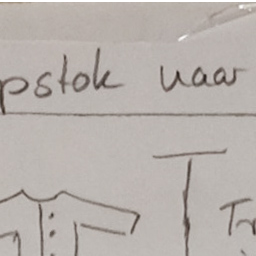 pstok naar
Tr